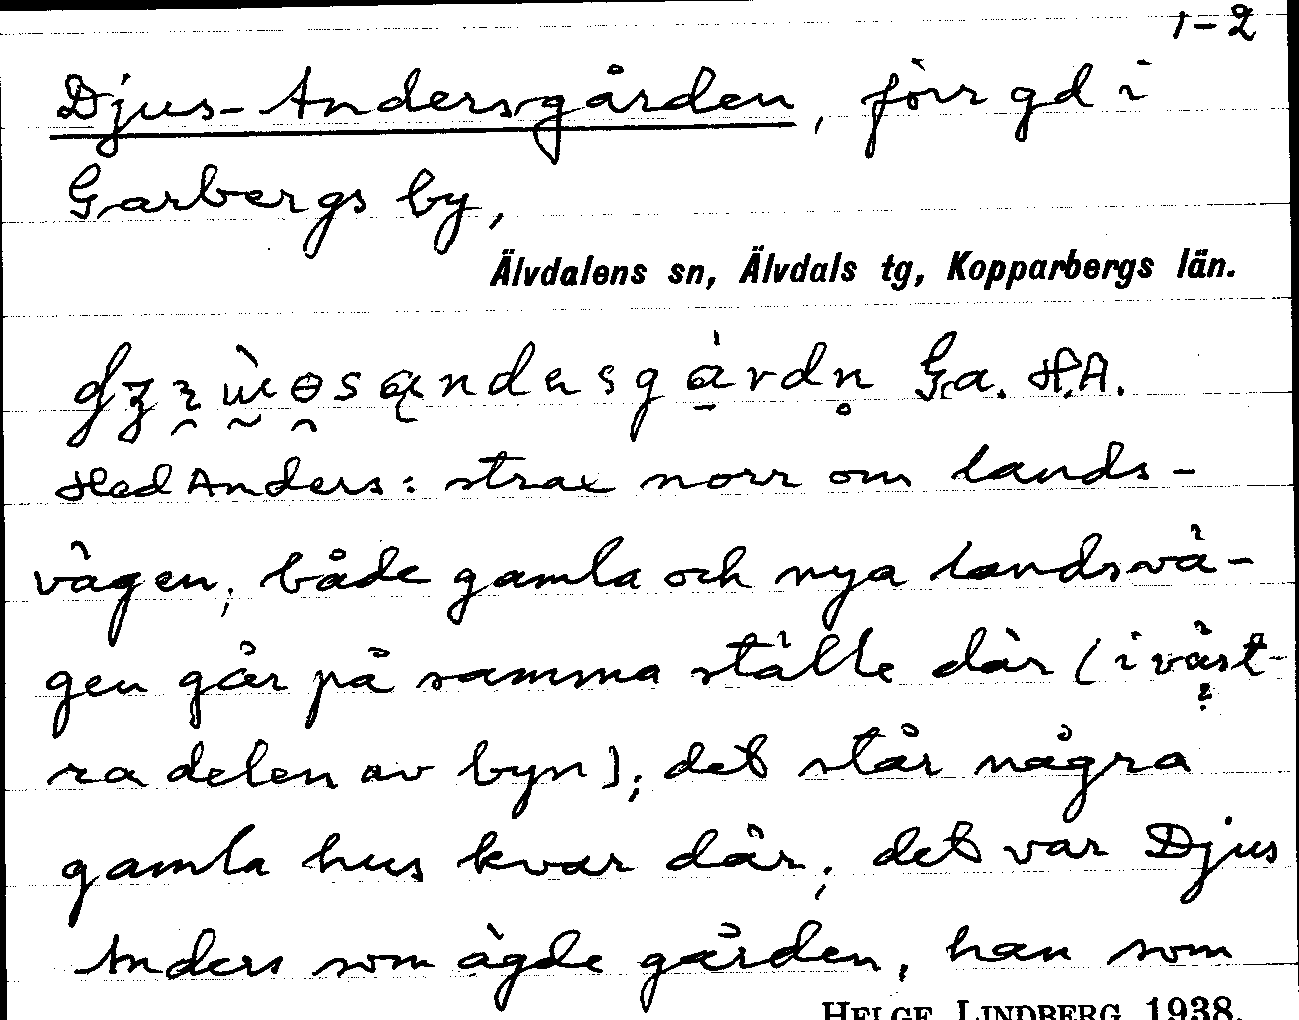 1-2
Djus-Andersgården, förr gd i
Garbergs by,
Älvdalens sn, Älvdals tg, Kopparbergs län.
Ga. H.A.
Hed Anders: strax norr om lands-
vägen, både gamla och nya landsvä-
gen går på samma ställe där (i väst-
ra delen av byn); det står några
gamla hus kvar där, det var Djus
Anders som ägde gården, han som
HELGE LINDBERG 1938.